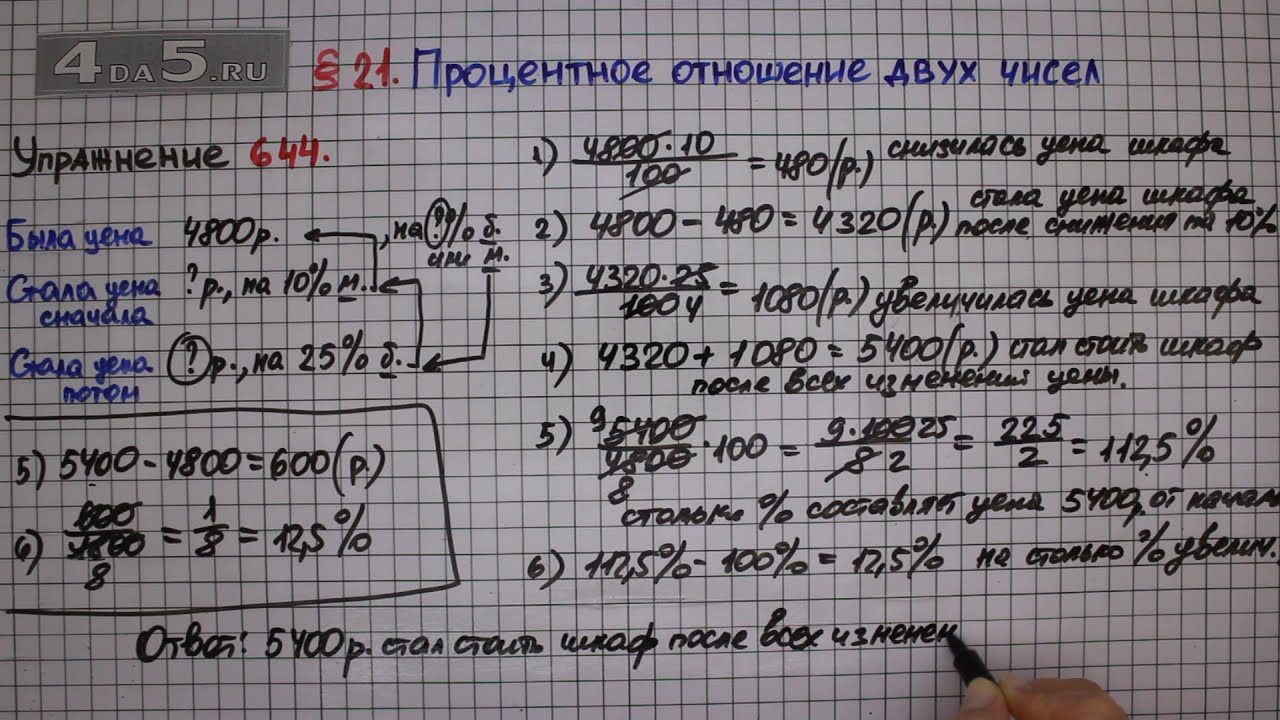 4DA5.RU
§ 21. Процентное отношение двух чисел
Упражнение 644.
Была цена 4800р. , на ?% б.
или м.
Стала цена ? р., на 10% м.
сначала
Стала цена ? р., на 25% б.
потом
5) 5400 - 4800 = 600 (р.)
6) 600/4800 8 = 1/8 = 12,5%
1) 4800·10/100 = 480 (р.) снизилась цена шкафа
2) 4800 - 480 = 4320 (р.) стала цена шкафа
после снижения на 10%
3) 4320·25/100 4 = 1080 (р.) увеличилась цена шкафа
4) 4320 + 1080 = 5400 (р.) стал стоить шкаф
после всех изменений цены.
5) 9 5400/4800 8 · 100 = 9·100 25/8 2 = 225/2 = 112,5%
столько % составляет цена 5400р. от начал
6) 112,5% - 100% = 12,5% на столько % увелич.
Ответ: 5400р. стал стоить шкаф после всех изменен